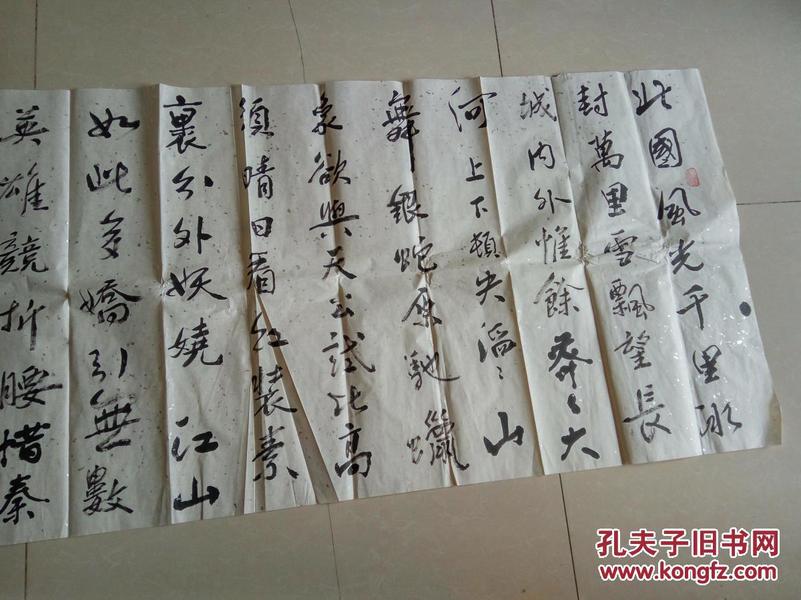 北國風光千里冰
封萬里雪飄望長
城内外惟餘莽〻大
河上下頓失滔〻山
舞銀蛇原馳蠟
象欲與天公試比高
須晴日看红裝素
裹分外妖嬈江山
如此多嬌引無數
英雄競折腰惜秦
孔夫子旧书网
www.kongfz.com